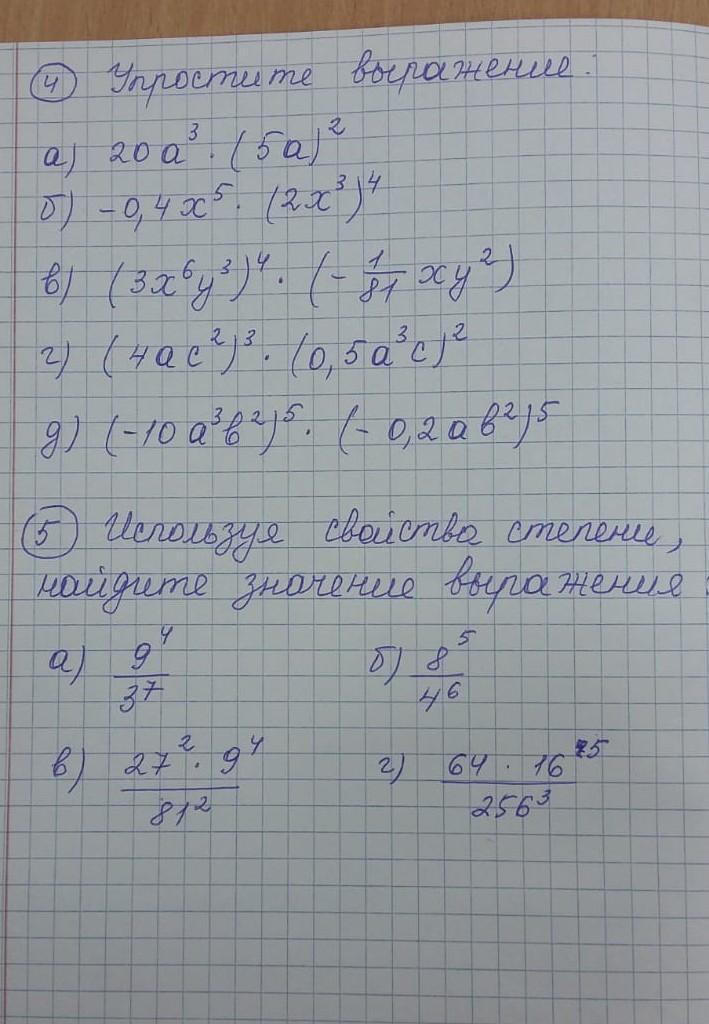 ④ Упростите выражение:
а) 20a³ · (5a)²
б) -0,4x⁵ · (2x³)⁴
в) (3x⁶y³)⁴ · (-1/81 xy²)
г) (4ac²)³ · (0,5a³c)²
д) (-10a³b²)⁵ · (-0,2ab²)⁵
⑤ Используя свойства степени,
найдите значение выражения
а) 9⁴/3⁷ б) 8⁵/4⁶
в) 27² · 9⁴/81² г) 64 · 16⁵/256³